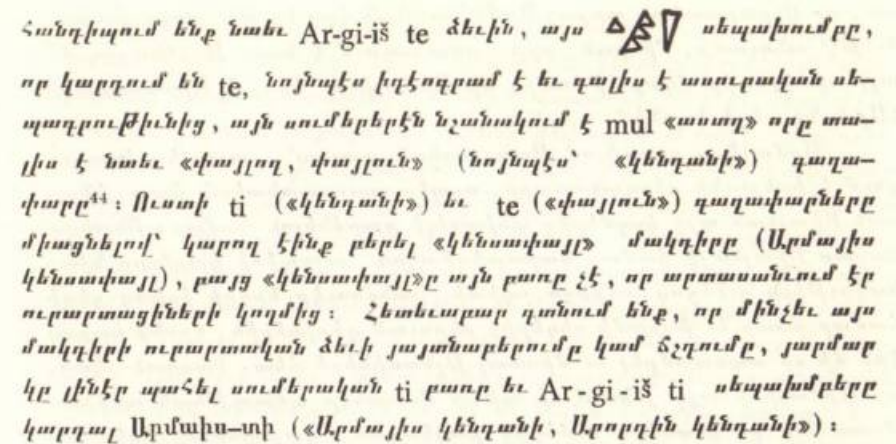 Հանդիպում ենք նաեւ Ar-gi-iš te ձեւին, այս սեպախումբը,
որ կարդում են te, նոյնպէս իդէոգրամ է եւ գալիս է ասուրական սե—
պագրութիւնից, այն սումերերէն նշանակում է mul «աստղ» որը տա—
լիս է նաեւ «փայլող, փայլուն» (նոյնպէս՝ «կենդանի») գաղա—
փարը⁴⁴: Ուստի ti («կենդանի») եւ te («փայլուն») գաղափարները
միացնելով՝ կարող էինք բերել «կենսափայլ» մակդիրը (Արմայիս
կենսափայլ), բայց «կենսափայլ»ը այն բառը չէ, որ արտասանւում էր
ուրարտացիների կողմից: Հետեւաբար գտնում ենք, որ մինչեւ այս
մակդիրի ուրարտական ձեւի յայտնաբերումը կամ ճշդումը, յարմար
կը լինէր պահել սումերական ti բառը եւ Ar-gi-iš ti սեպախմբերը
կարդալ Արմաիս—տի («Արմայիս կենդանի, Արորդին կենդանի»):